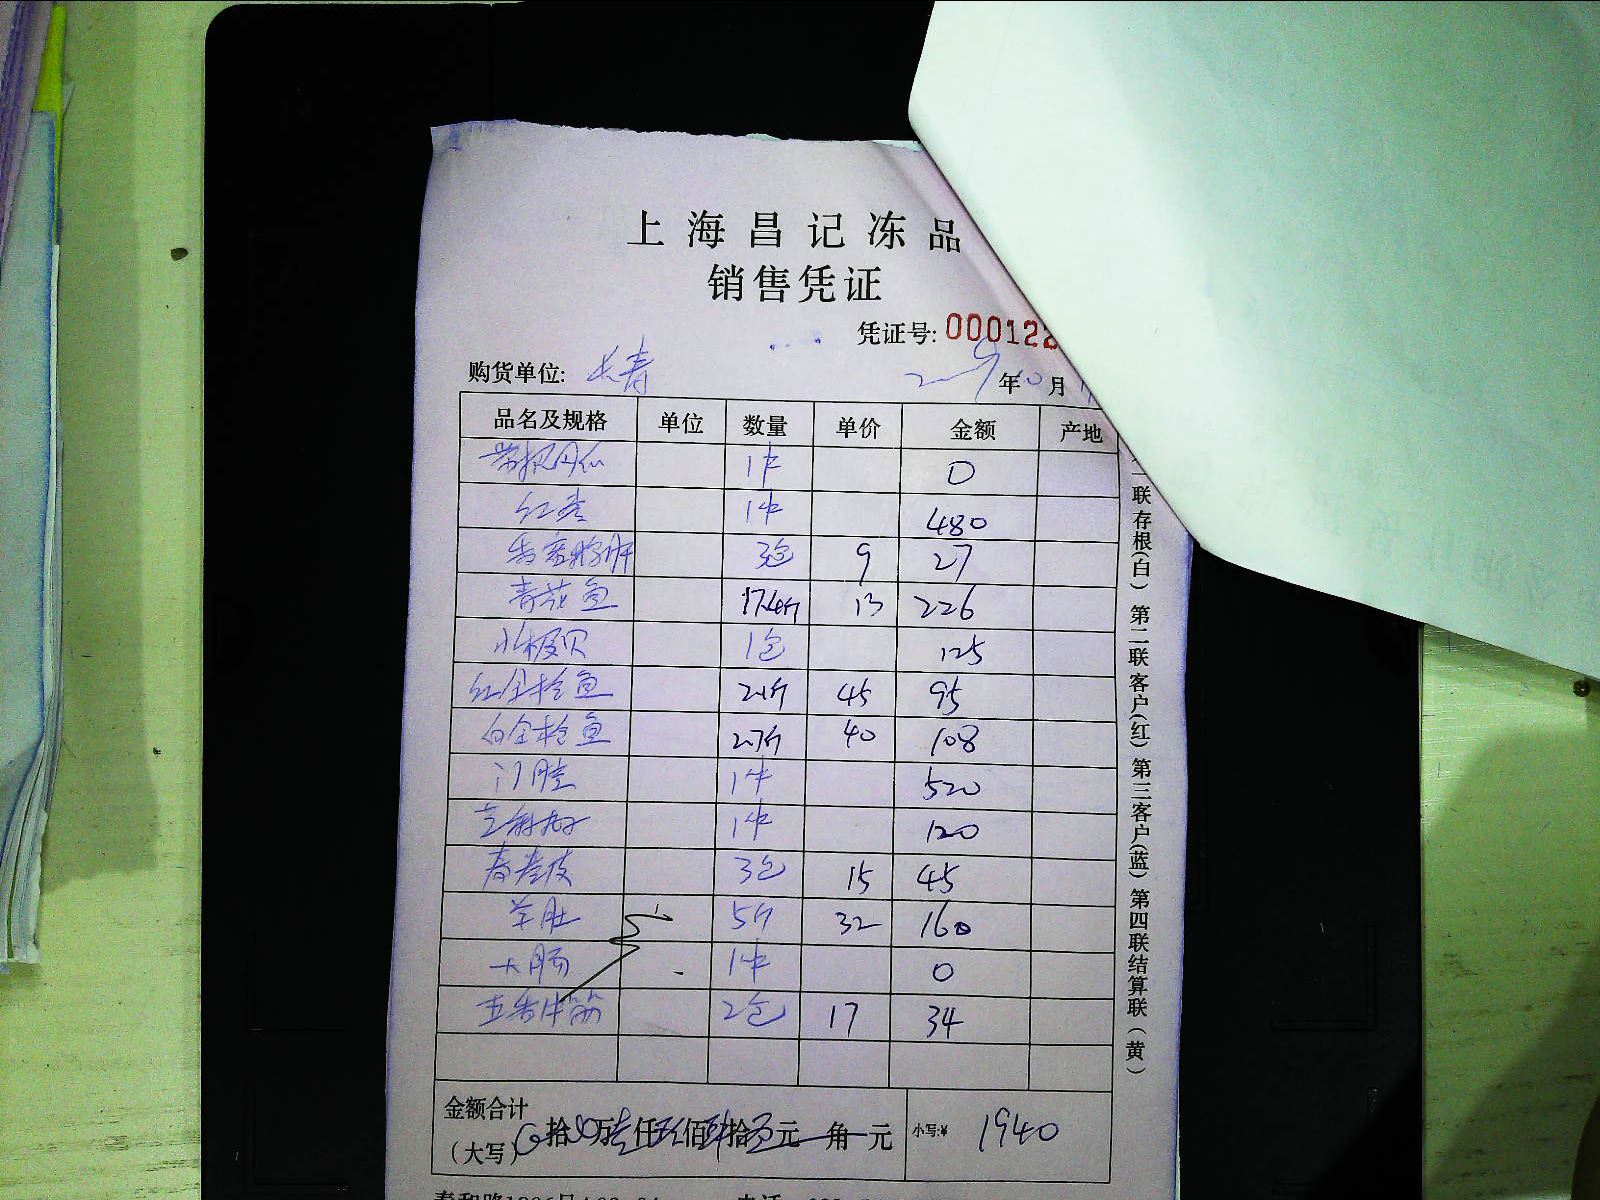 上海昌记冻品
销售凭证
凭证号: 000122
购货单位: 长青 2019年10月
品名及规格 单位 数量 单价 金额 产地
1件 0
红 1件 480
3包 9 27
青花鱼 17.4斤 13 226
北极贝 1包 125
红金枪鱼 2.1斤 45 95
白金枪鱼 2.7斤 40 108
门腔 1件 520
1件 120
春卷皮 3包 15 45
羊肚 5斤 32 160
大肠 1件 0
五香牛筋 2包 17 34
金额合计
(大写) 0拾0万壹仟玖佰肆拾元角元 小写:¥ 1940
一联存根(白) 第二联客户(红) 第三客户(蓝) 第四联结算联(黄)